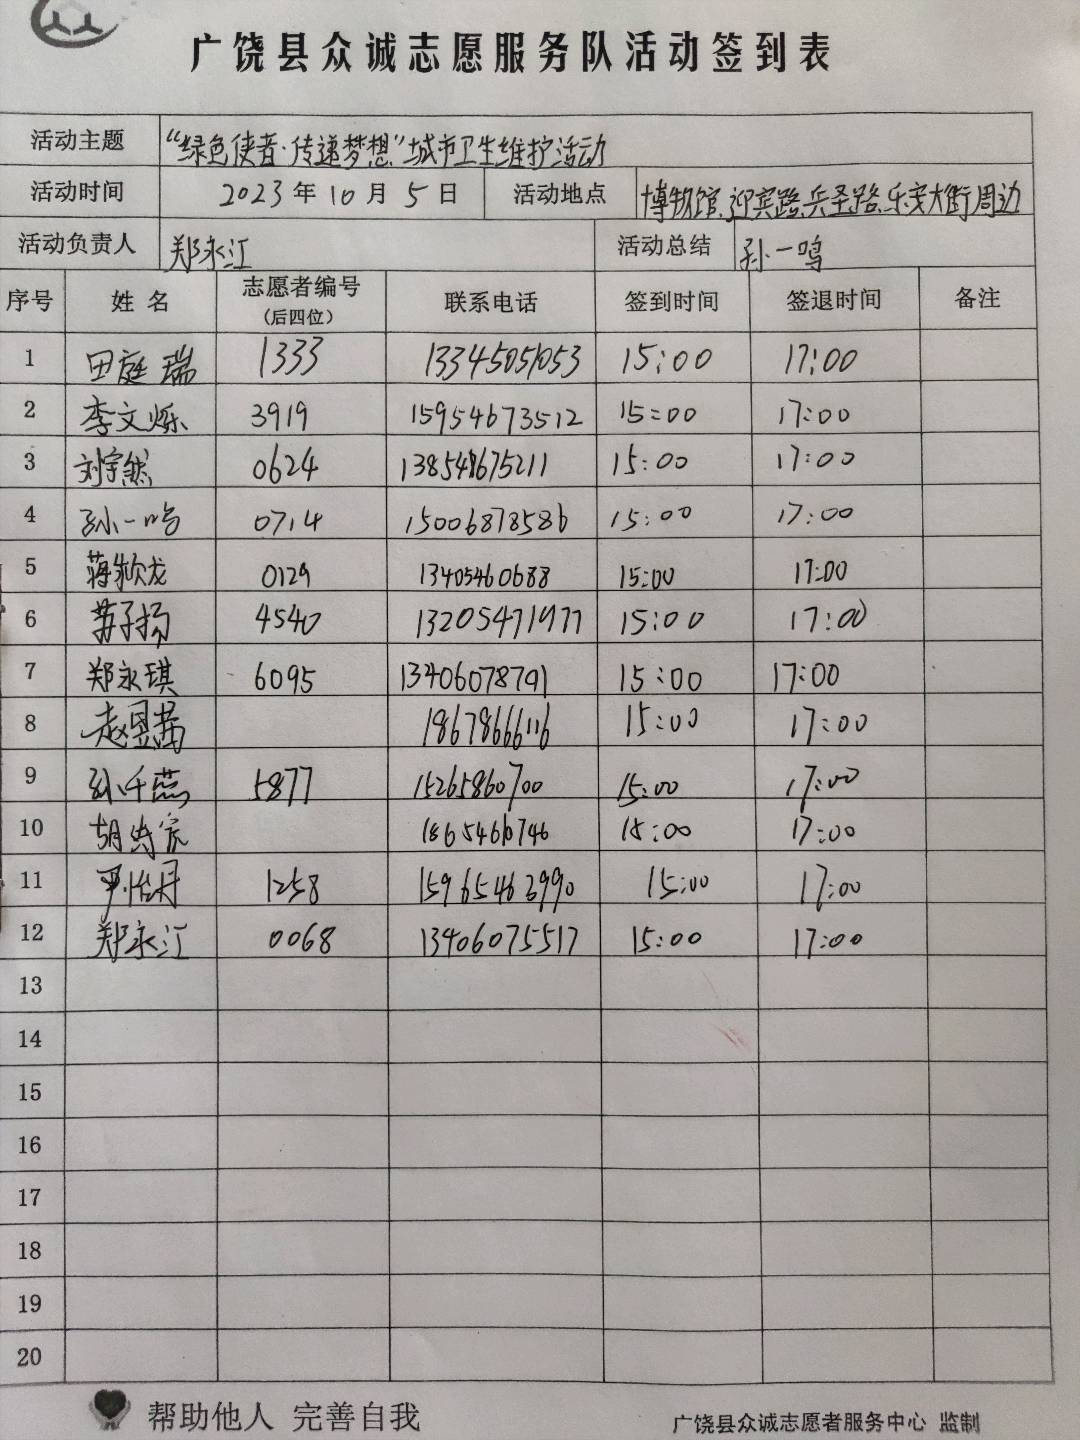 广饶县众诚志愿服务队活动签到表
活动主题 “绿色使者·传递梦想”城市卫生维护活动
活动时间 2023年10月5日 活动地点 博物馆、迎宾路、兵圣路、乐安大街周边
活动负责人 郑永江 活动总结 孙一鸣
序号 姓名 志愿者编号（后四位） 联系电话 签到时间 签退时间 备注
1 田庭瑞 1333 13345051053 15:00 17:00
2 李文烁 3919 15954673512 15:00 17:00
3 刘宇然 0624 15:00 17:00
4 孙一鸣 0714 15006878586 15:00 17:00
5 蒋欣龙 0129 13405460688 15:00 17:00
6 苏子扬 4540 13205471977 15:00 17:00
7 郑永琪 6095 13406078791 15:00 17:00
8 赵昱茜 18678666116 15:00 17:00
9 孙千燕 5877 15265860700 15:00 17:00
10 18654610746 15:00 17:00
11 1258 15965463990 15:00 17:00
12 郑永江 0068 13406075517 15:00 17:00
13
14
15
16
17
18
19
20
帮助他人 完善自我
广饶县众诚志愿者服务中心 监制